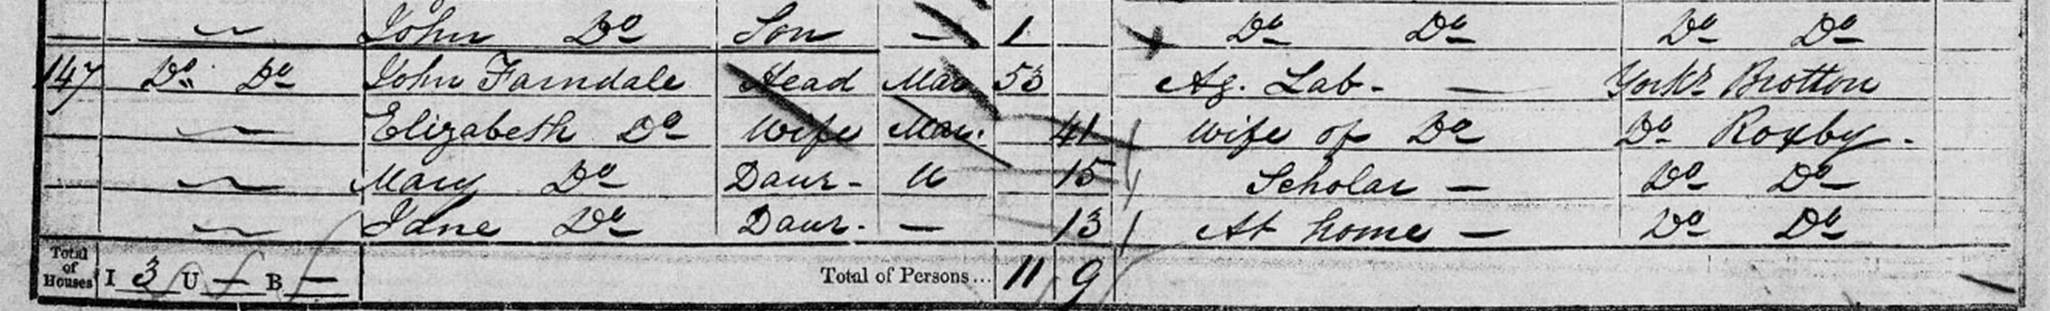 John Do Son — 1 Do Do Do Do
147 Do Do John Farndale Head Mar 53 Ag. Lab. — Yorks Brotton
Elizabeth Do Wife Mar. 41 Wife of Do Do Roxby.
Mary Do Daur. U 15 Scholar — Do Do
Jane Do Daur. — 13 At home — Do Do
Total of Houses I 3 U — B — Total of Persons... 11 9